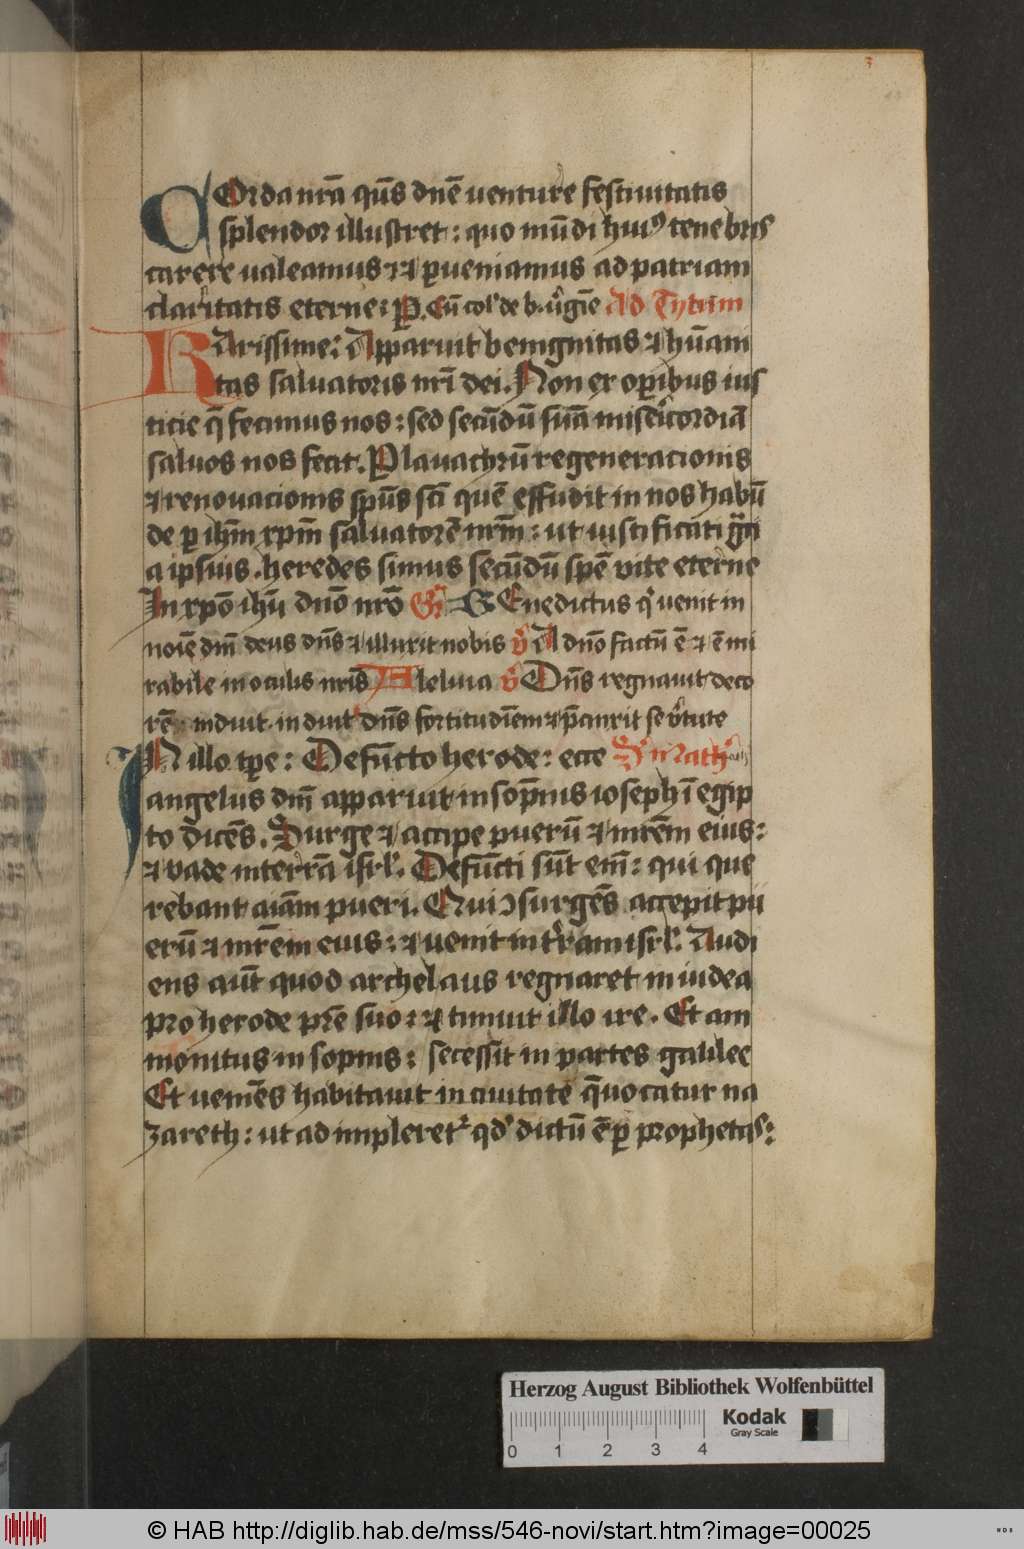 COrda nr̄a qūs dn̄e venture festiuitatis
splendor illustret : quo mūdi huiꝰ tenebris
carere ualeamus ⁊ ꝑueniamus ad patriam
claritatis eterne : P. Eū col' de b. ủgīe Ad Tytum
KArissime : Apparuit benignitas ⁊ hūani
tas saluatoris nr̄i dei. Non ex oꝑibus ius
ticie q̄ fecimus nos : sed secūdū suā misericordiā
saluos nos fecit. P lauachrū regeneracionis
⁊ renouacionis sp̄us sc̄i quē effudit in nos habū
de ꝑ ih̄m xp̄m saluatorē nr̄m : ut iustificati gr̄a
ipsius . heredes simus secūdū spē vite eterne
In xp̄o ih̄u dn̄o nr̄o Gr̄ BEnedictus q' uenit in
noīe dn̄i deus dn̄s ⁊ illuxit nobis v̉ A dn̄o factū ē ⁊ ē mi
rabile in oculis nr̄is Aleluia v̉ Dn̄s regnauit deco
rē induit induit dn̄s fortitudiēm ⁊ p̄cinxit se v̉tute
IN illo tp̄e : Defūcto herode : ecce S' Math'
angelus dn̄i apparuit in sop̄nis ioseph ī egip
to dicēs. Surge ⁊ accipe puerū ⁊ mr̄em eius :
⁊ vade in terrā isrl'. Defūcti sūt em̄ : qui que
rebant aīam pueri. Qui ↄsurgēs accepit pu
erū ⁊ mr̄em eius : ⁊ uenit in t'ram isrl'. Audi
ens aūt quod archelaus regnaret in iudea
pro herode pr̄e suo : ⁊ timuit illo ire. Et am
monitus in sopnis : secessit in partes galilee
Et ueniēs habitauit in ciuitate q̄ uocatur na
zareth : ut adimpleret' qd' dictū ē ꝑ prophetas :
Herzog August Bibliothek Wolfenbüttel
0 1 2 3 4
Kodak
Gray Scale
© HAB http://diglib.hab.de/mss/546-novi/start.htm?image=00025